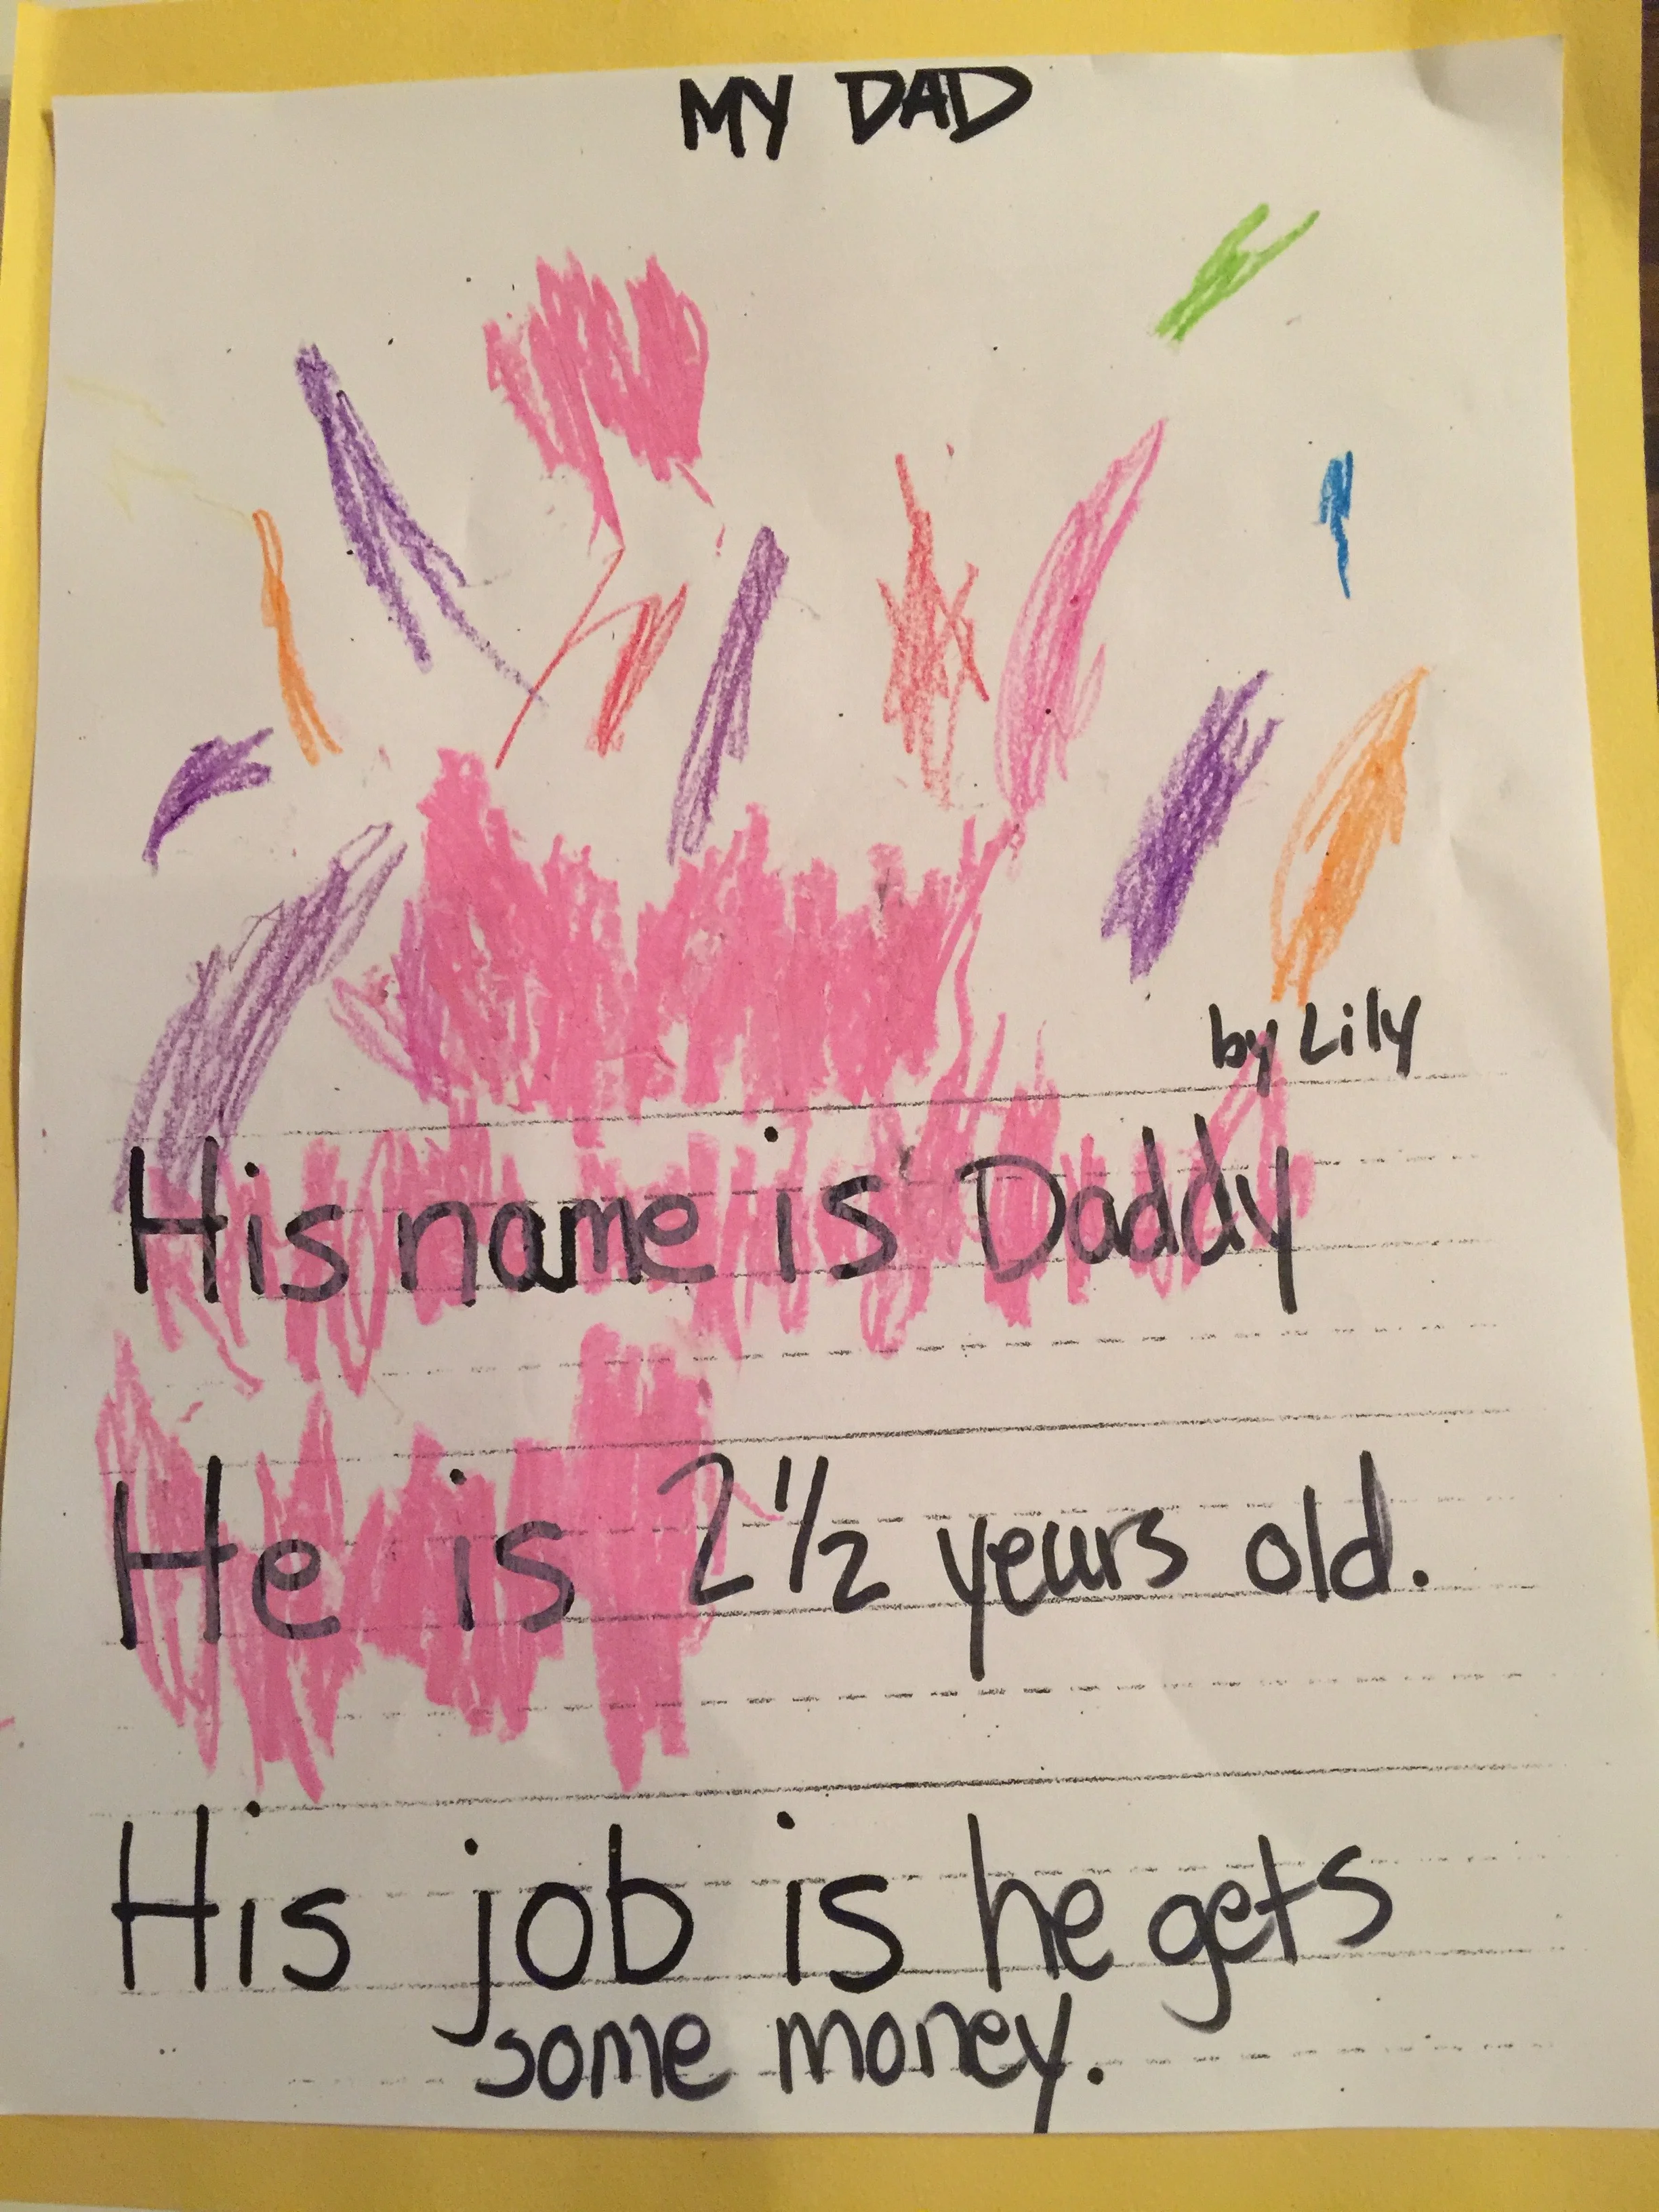 MY DAD
by Lily
His name is Daddy
He is 2 1/2 years old.
His job is he gets
some money.